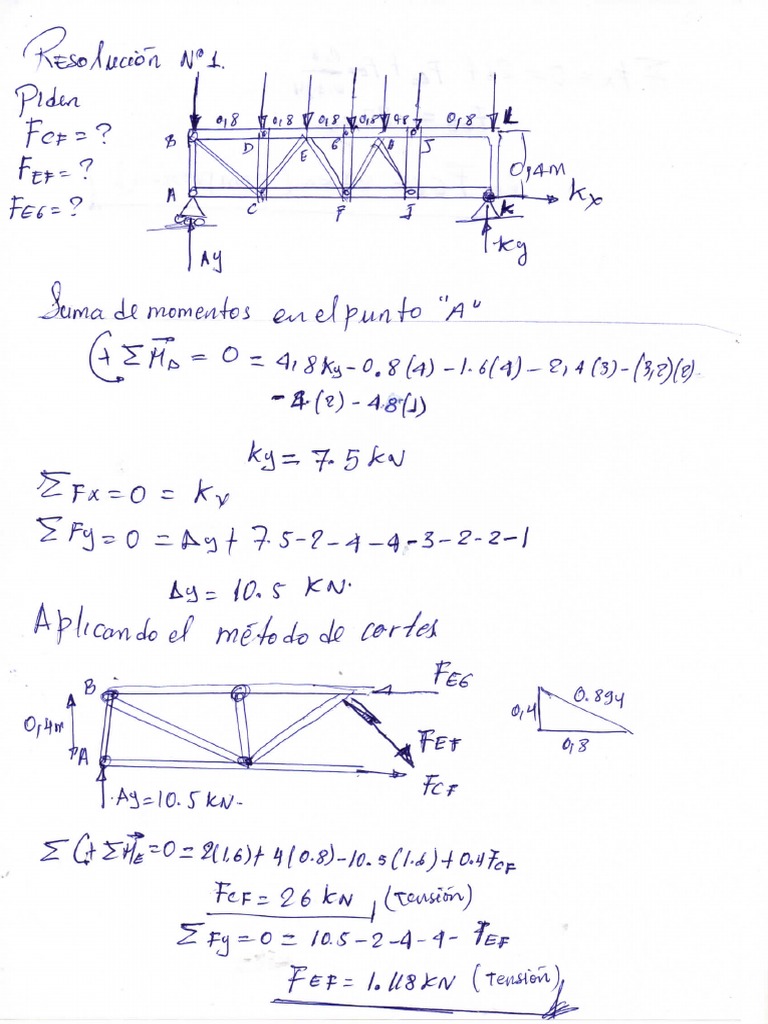 Resolución Nº1.
Piden
FCF = ?
FEF = ?
FEG = ?
0,8 0,8 0,8 0,8 0,8 0,8
B D E G H J L
0,4m
A C F I K Kx
Ay Ky
Suma de momentos en el punto "A"
(+ ΣMA = 0 = 4,8Ky - 0.8(4) - 1.6(4) - 2,4(3) - (3,2)(2)
- 4(2) - 4.8(1)
Ky = 7.5 kN
ΣFx = 0 = Kx
ΣFy = 0 = Ay + 7.5 - 2 - 4 - 4 - 3 - 2 - 2 - 1
Ay = 10.5 KN.
Aplicando el método de cortes
B FEG
0,4m 0,4 0.894
0,8
A FEF
FCF
Ay = 10.5 KN.
Σ (+ ΣME = 0 = 2(1.6) + 4(0.8) - 10.5(1.6) + 0.4FCF
FCF = 26 KN (Tensión)
ΣFy = 0 = 10.5 - 2 - 4 - 4 - FEF
FEF = 1.118 KN (Tensión)